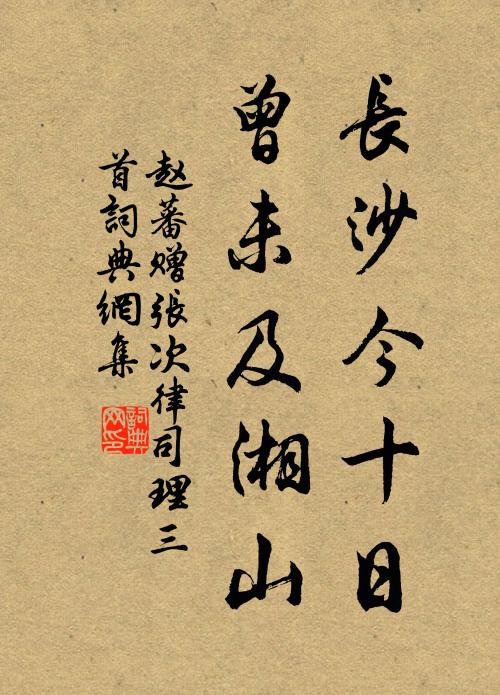 長沙今十日
曾未及湘山
赵蕃贈張次律司理三
首詞典網集
詞典网印